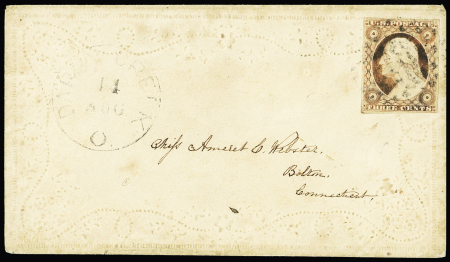 14
AUG
O
U.S. POSTAGE
THREE CENTS
Miss Amelet C. Webster.
Bolton.
Connecticut.